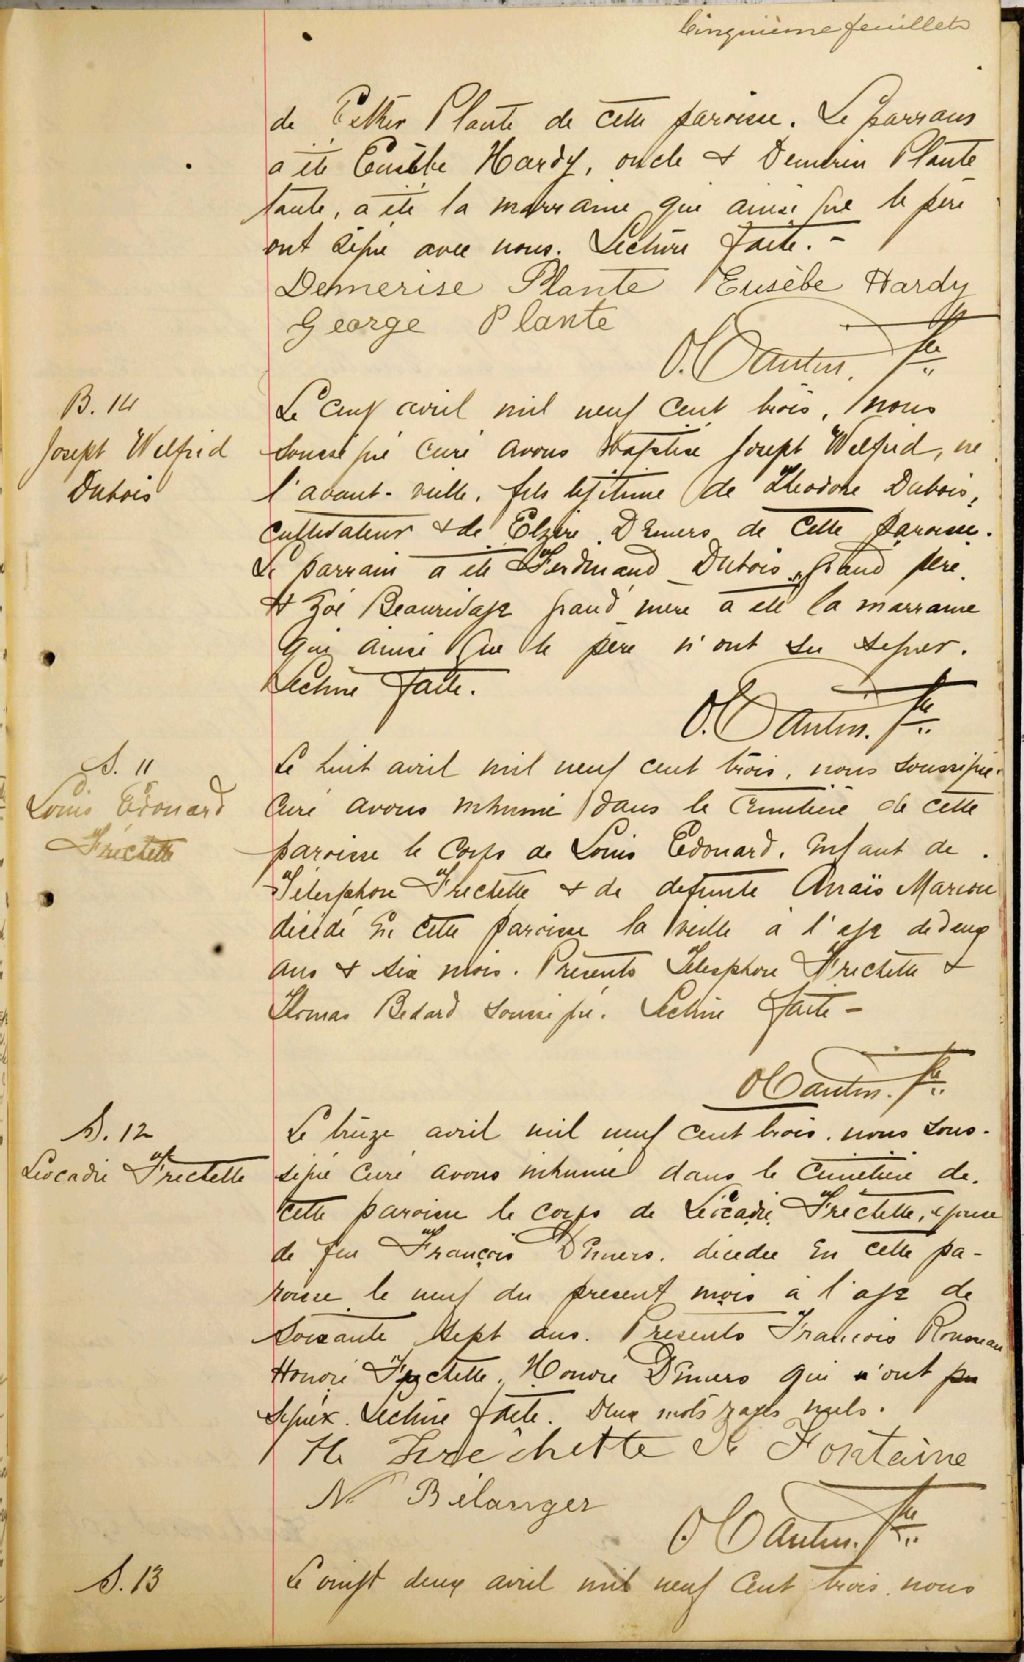 Cinquième feuillet
de Esther Plante de cette paroisse. Le parrain
a été Eusèbe Hardy, oncle & Demerise Plante
tante, a été la marraine qui ainsi que le père
ont signé avec nous. Lecture faite. -
Demerise Plante Eusèbe Hardy
George Plante
O. Cantin, Ptre
B. 14
Joseph Wilfrid
Dubois
Le cinq avril mil neuf cent trois, nous
soussigné curé avons baptisé Joseph Wilfrid, né
l'avant-veille, fils légitime de Théodore Dubois,
cultivateur & de Elzire Demers de cette paroisse.
Le parrain a été Ferdinand Dubois, grand père
& Zoé Beaurivage grand'mère a été la marraine
qui ainsi que le père n'ont su signer.
Lecture faite.
O. Cantin. Ptre
S. 11
Louis Edouard
Fréchette
Le huit avril mil neuf cent trois, nous soussigné
curé avons inhumé dans le cimetière de cette
paroisse le corps de Louis Edouard, enfant de
Télesphore Frechette & de defunte Anaïs Marion
décédé en cette paroisse la veille à l'age de deux
ans & six mois. Présents Télesphore Frechette &
Thomas Bedard soussigné. Lecture faite -
O Cantin. Ptre
S. 12
Léocadie Frechette
Le treize avril mil neuf cent trois, nous sous-
signé curé avons inhumé dans le cimetière de
cette paroisse le corps de Léocadie Fréchette, épouse
de feu François Demers, décédée en cette pa-
roisse le neuf du présent mois à l'age de
soixante sept ans. Présents François Rousseau
Honoré Frechette, Honoré Demers qui n'ont pu
signer. Lecture faite. Deux mots rayés nuls.
H. Frechette Fontaine
N. Bélanger
O. Cantin. Ptre
S. 13
Le vingt deux avril mil neuf cent trois nous